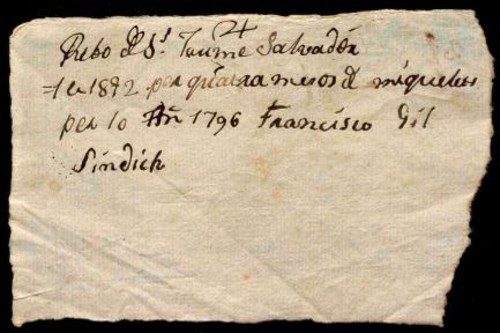 Rebo del Sr. Jaume Salvadór
1872 per quatra mesos de miquelets
per lo Añ 1796 Francisco Gil
Sindich